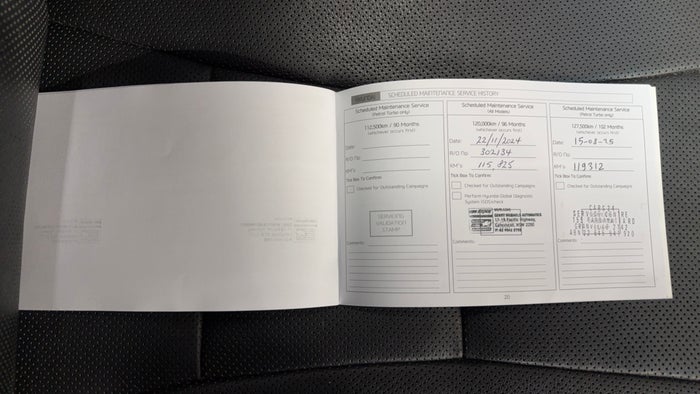 HYUNDAI SCHEDULED MAINTENANCE SERVICE HISTORY
Scheduled Maintenance Service
(Petrol Turbo only)
112,500km / 90 Months
(whichever occurs first)
Date:
R/O No:
KM's:
Tick Box To Confirm:
Checked for Outstanding Campaigns
SERVICING
VALIDATION
STAMP
Comments:
Scheduled Maintenance Service
(All Models)
120,000km / 96 Months
(whichever occurs first)
Date: 22/11/2024
R/O No: 302134
KM's: 115,825
Tick Box To Confirm:
Checked for Outstanding Campaigns
Perform Hyundai Global Diagnostic
System (GDS)check
17-19 Pacific Highway,
Comments:
Scheduled Maintenance Service
(Petrol Turbo only)
127,500km / 102 Months
(whichever occurs first)
Date: 15-08-25
R/O No:
KM's: 119312
Tick Box To Confirm:
Checked for Outstanding Campaigns
CARS24
SERVICE CENTRE
GRANVILLE 2142
Comments:
20